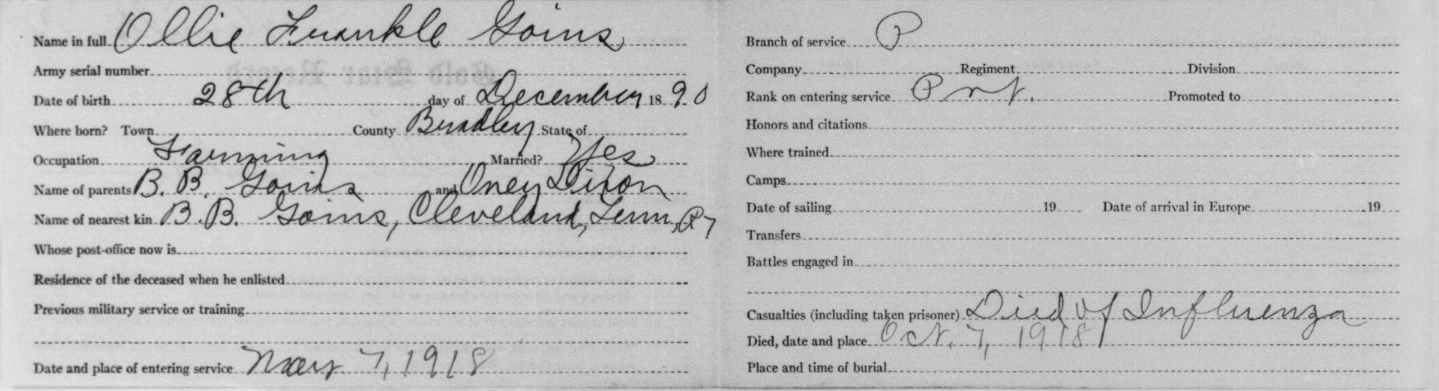 Name in full Ollie Frankle Goins
Army serial number
Date of birth 28th day of December 1890
Where born? Town County Bradley State of
Occupation Farming Married? Yes
Name of parents B. B. Goins and Oney Dixon
Name of nearest kin B. B. Goins, Cleveland, Tenn, R7
Whose post-office now is
Residence of the deceased when he enlisted
Previous military service or training
Date and place of entering service May 7, 1918
Branch of service P
Company Regiment Division
Rank on entering service Prt. Promoted to
Honors and citations
Where trained
Camps
Date of sailing 19 Date of arrival in Europe 19
Transfers
Battles engaged in
Casualties (including taken prisoner) Died of Influenza
Died, date and place Oct. 7, 1918
Place and time of burial